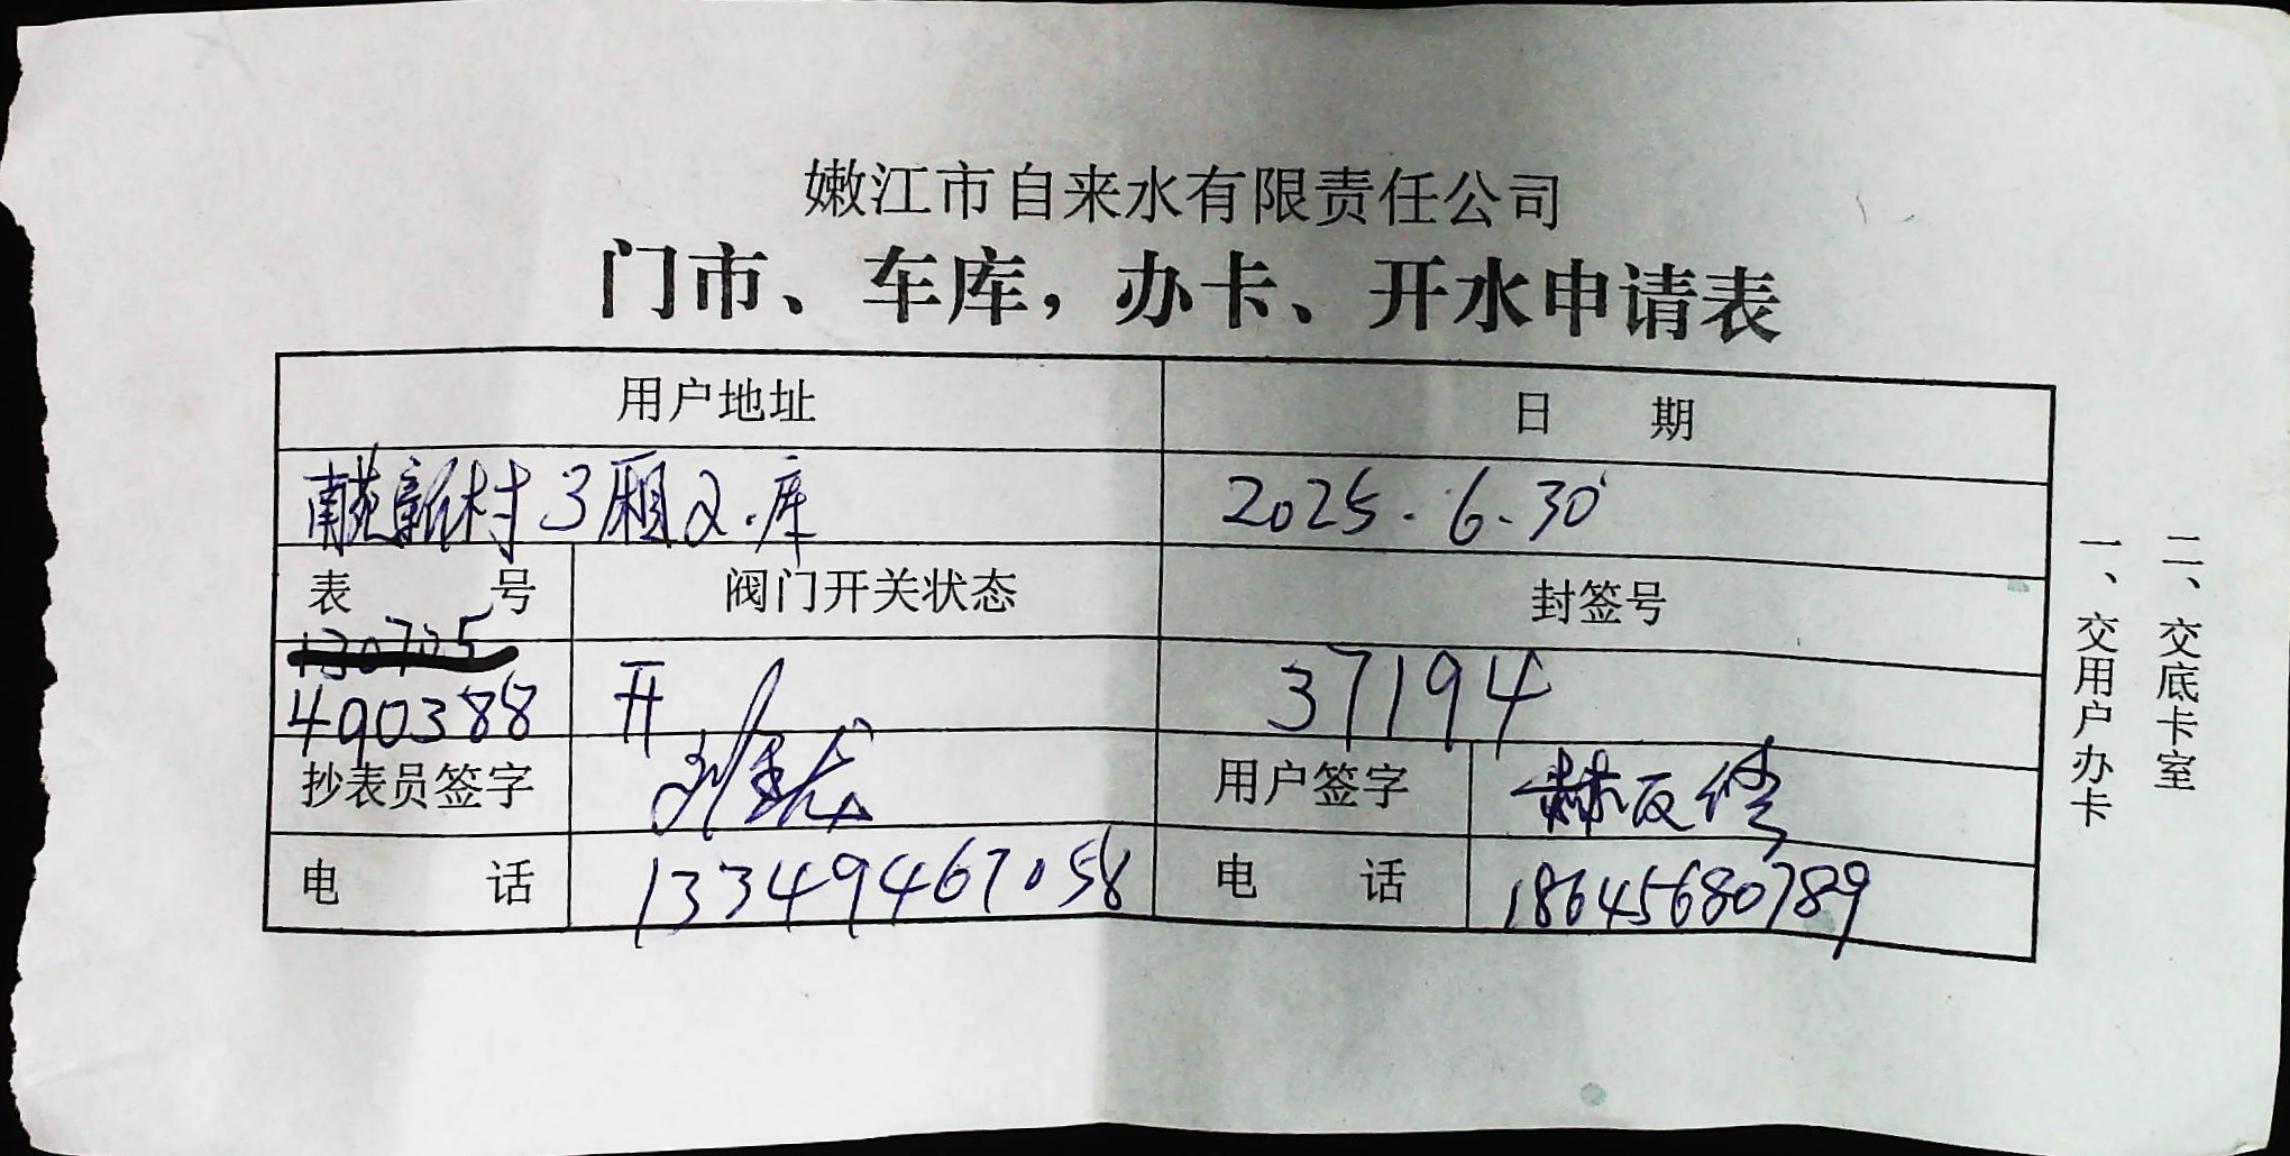 嫩江市自来水有限责任公司
门市、车库，办卡、开水申请表
用户地址 日 期
南苑新村3厢2.库 2025.6.30
表 号 阀门开关状态 封签号
130705
490388 开 37194
抄表员签字 用户签字
电 话 13349467058 电 话 18645680789
一、交用户办卡
二、交底卡室